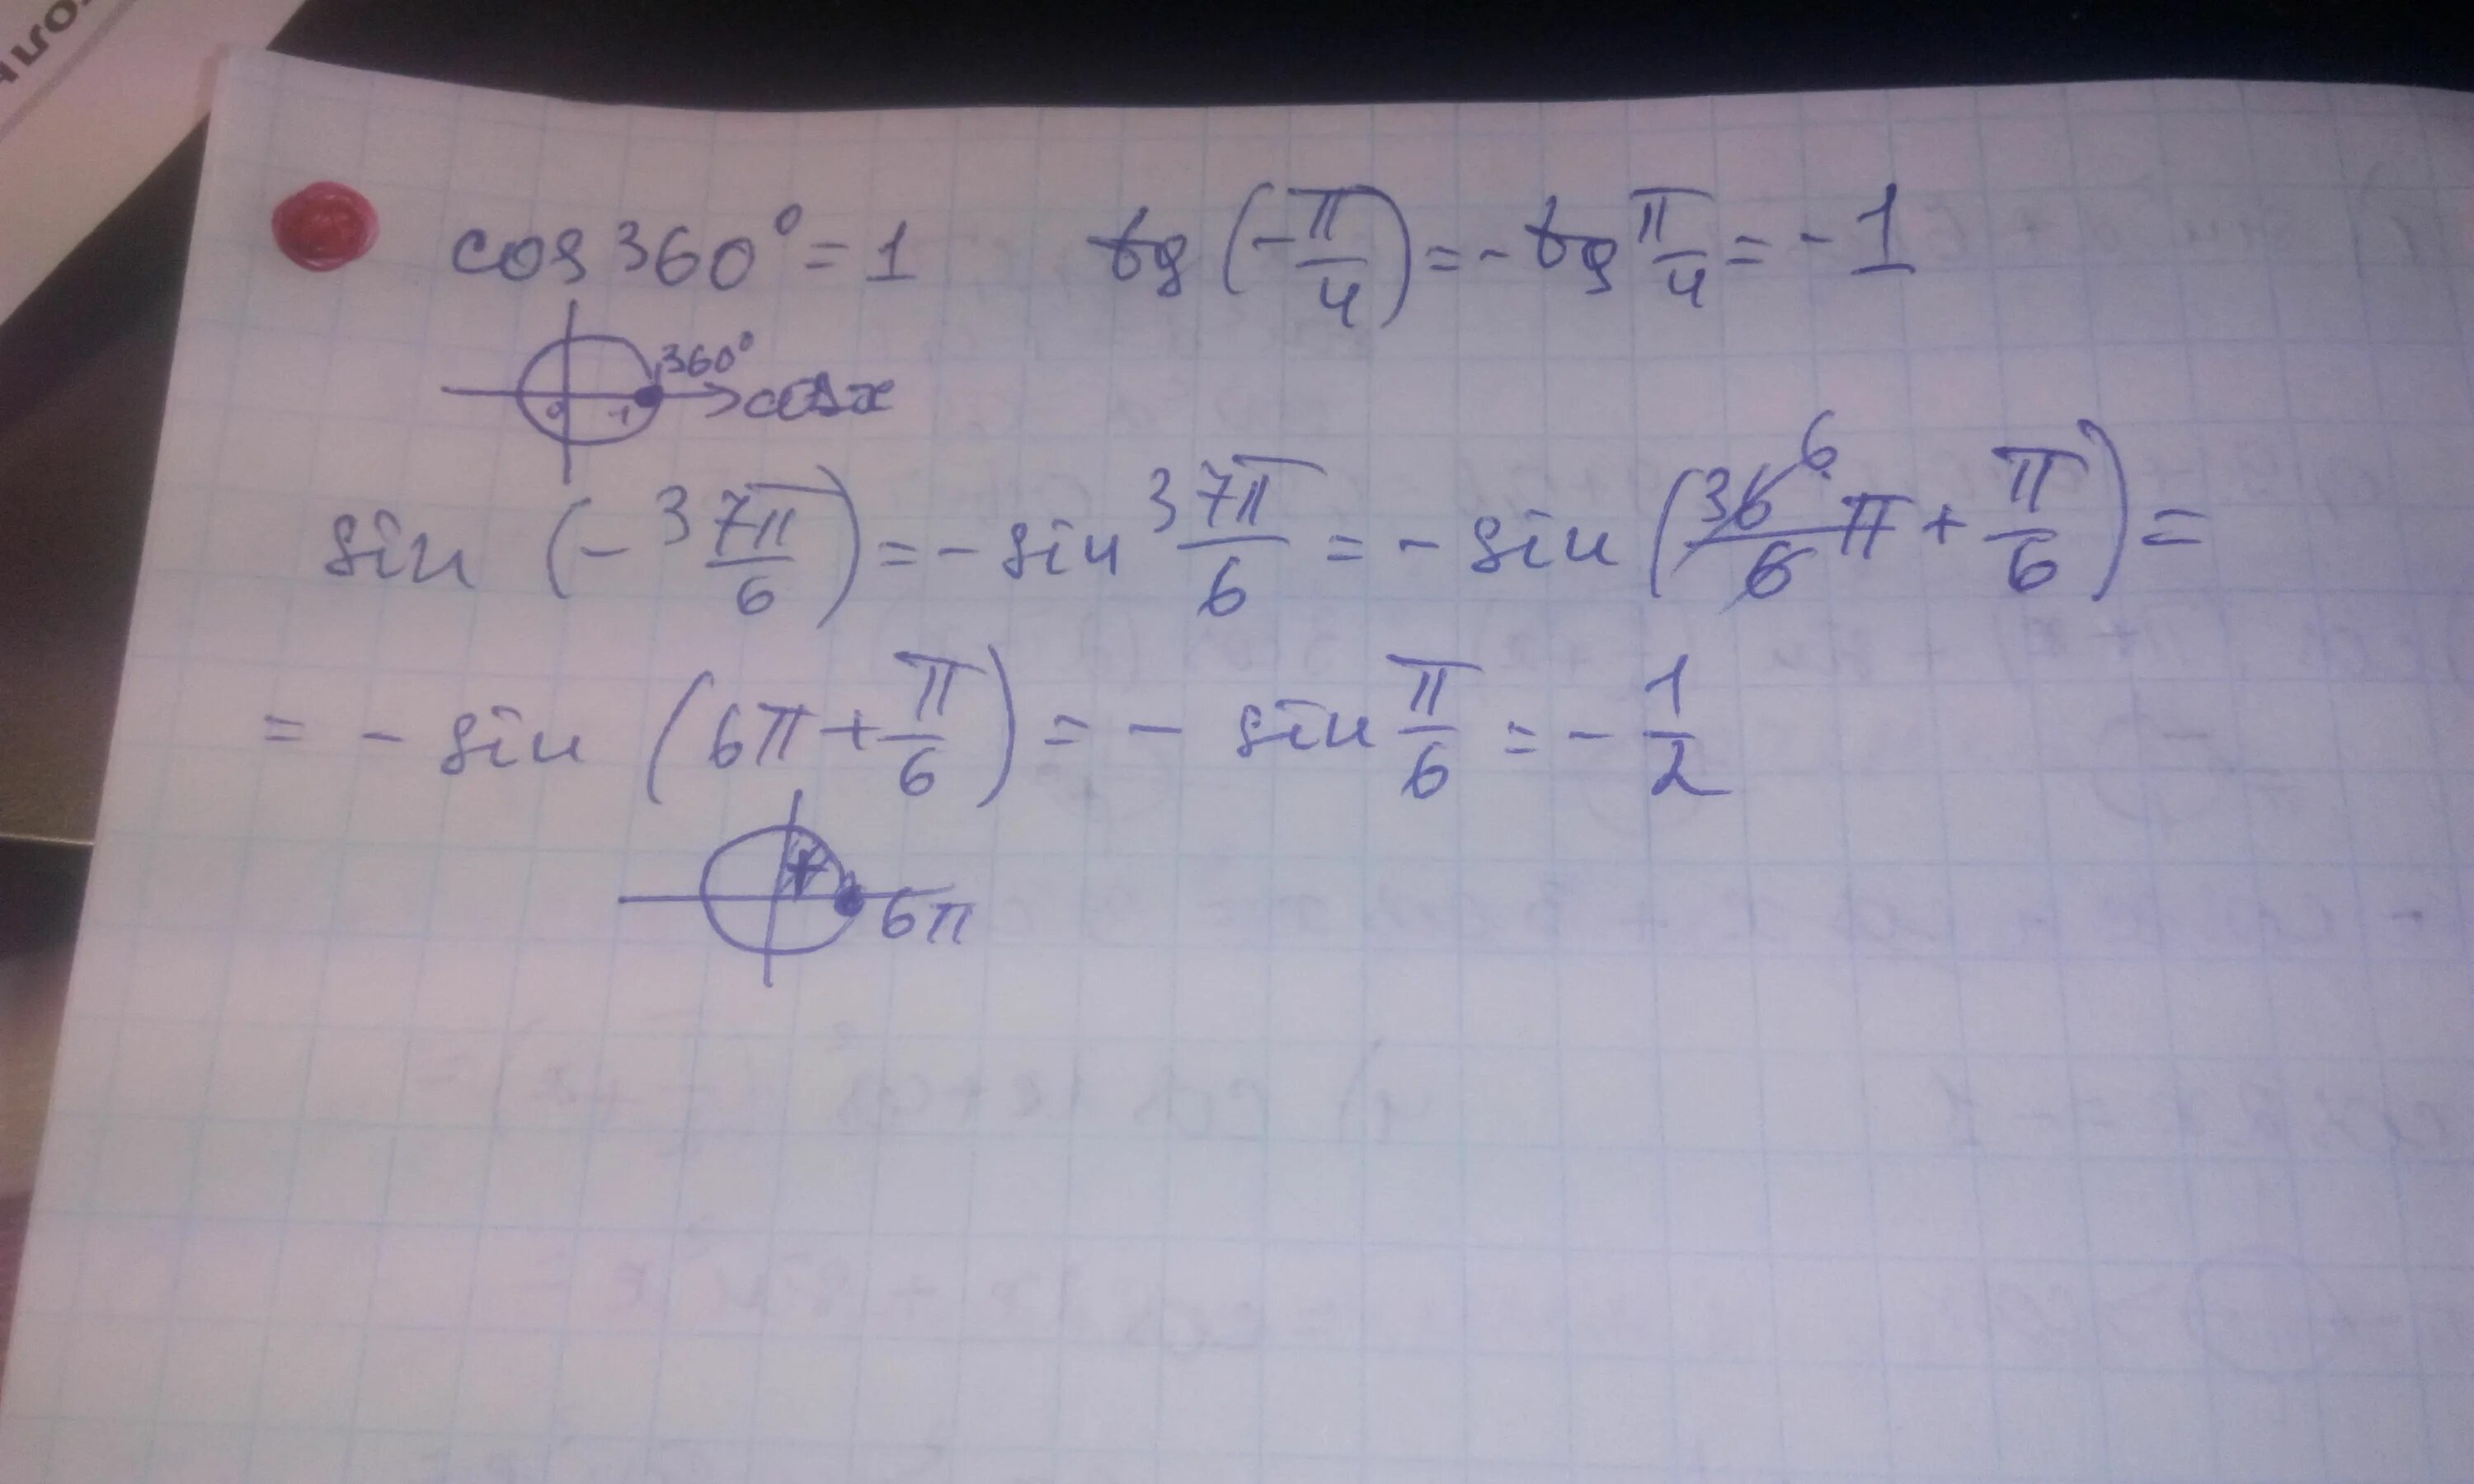 cos 360° = 1 tg (-π/4) = -tg π/4 = -1
360°
0 1 cos x
sin (-37π/6) = -sin 37π/6 = -sin (36/6 6 π + π/6) =
= - sin (6π + π/6) = - sin π/6 = - 1/2
+
6π